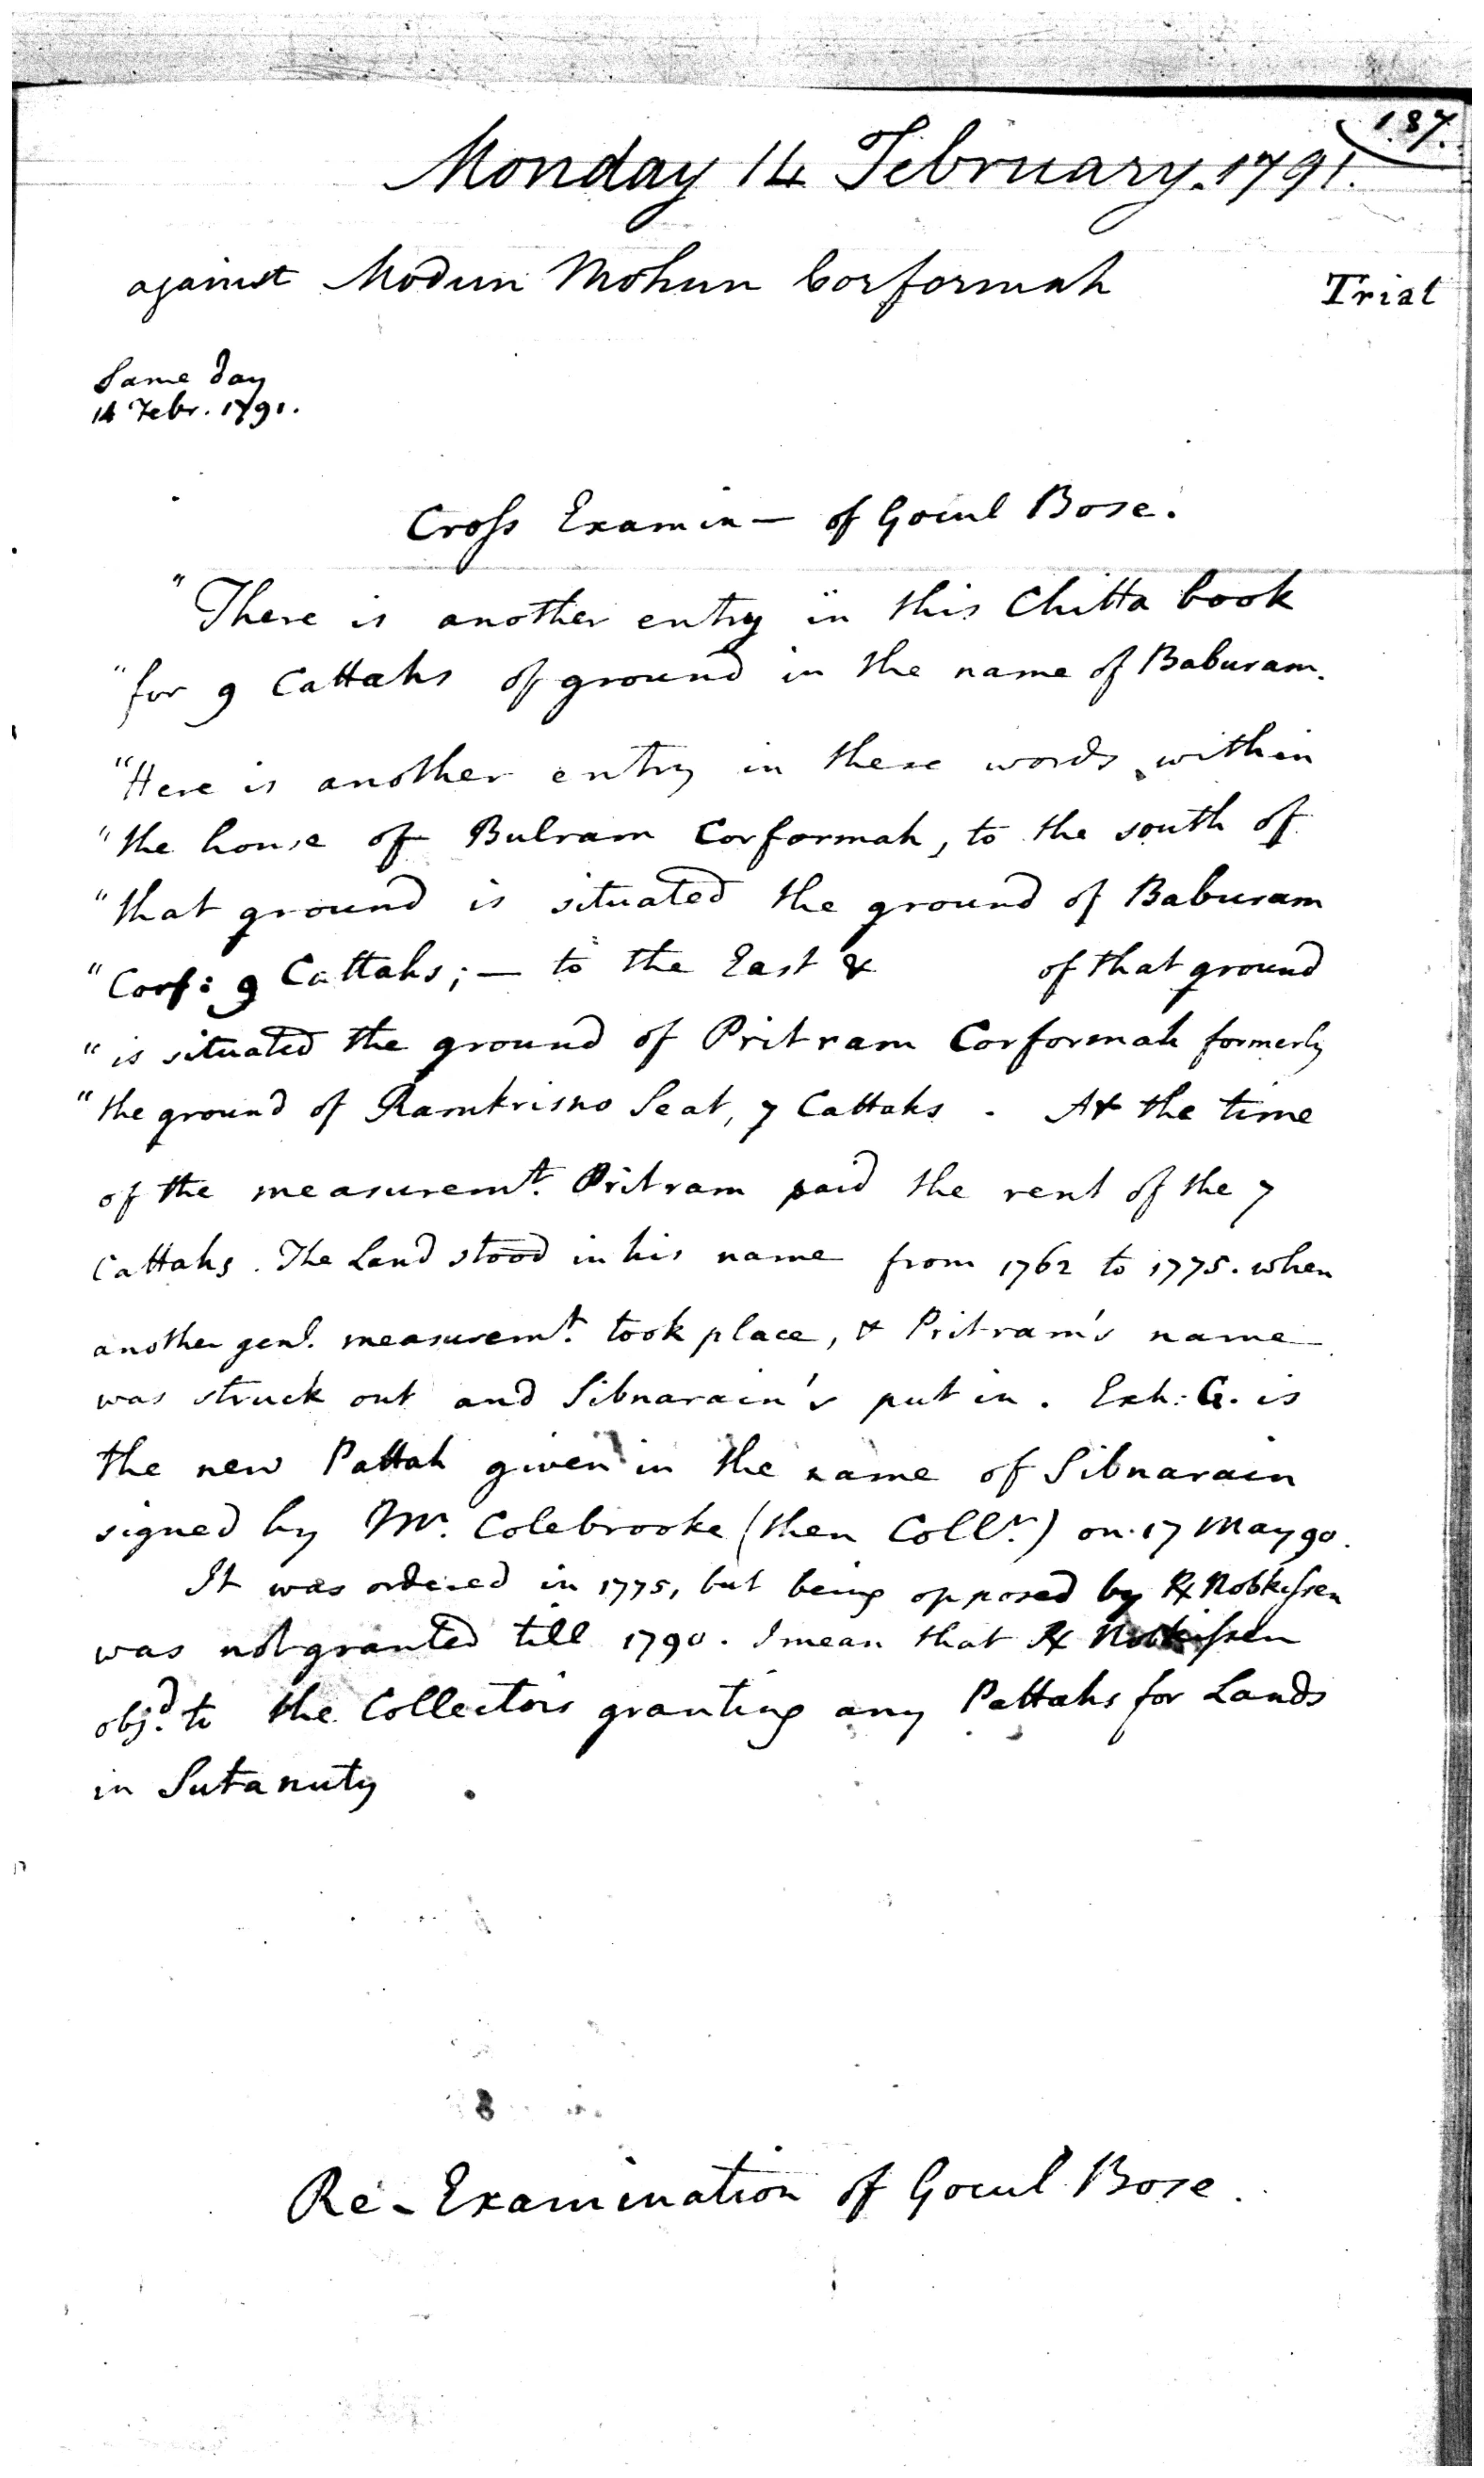 187.
Monday 14 February. 1791.
against Modun Mohun Corformah Trial
Same day
14 Febr. 1791.
Cross Examin— of Gocul Bose.
"There is another entry in this Chitta book
"for 9 Cattahs of ground in the name of Baburam.
"Here is another entry in these words, within
"the house of Bulram Corformah, to the south of
"that ground is situated the ground of Baburam
"Corf: 9 Cattahs; — to the East & of that ground
"is situated the ground of Pritram Corformah formerly
"the ground of Ramkrisno Seat, 7 Cattahs . At the time
of the measuremt. Pritram paid the rent of the 7
Cattahs. The Land stood in his name from 1762 to 1775. when
another genl. measuremt. took place, & Pritram's name
was struck out and Sibnarain's put in. Exh: G. is
the new Pattah given in the name of Sibnarain
signed by Mr. Colebrooke (then Collr.) on 17 May 90.
It was ordered in 1775, but being opposed by R Nobkissen
was not granted till 1790. I mean that R Nobkissen
objd. to the Collectors granting any Pattahs for Lands
in Sutanuty .
Re-Examination of Gocul Bose.